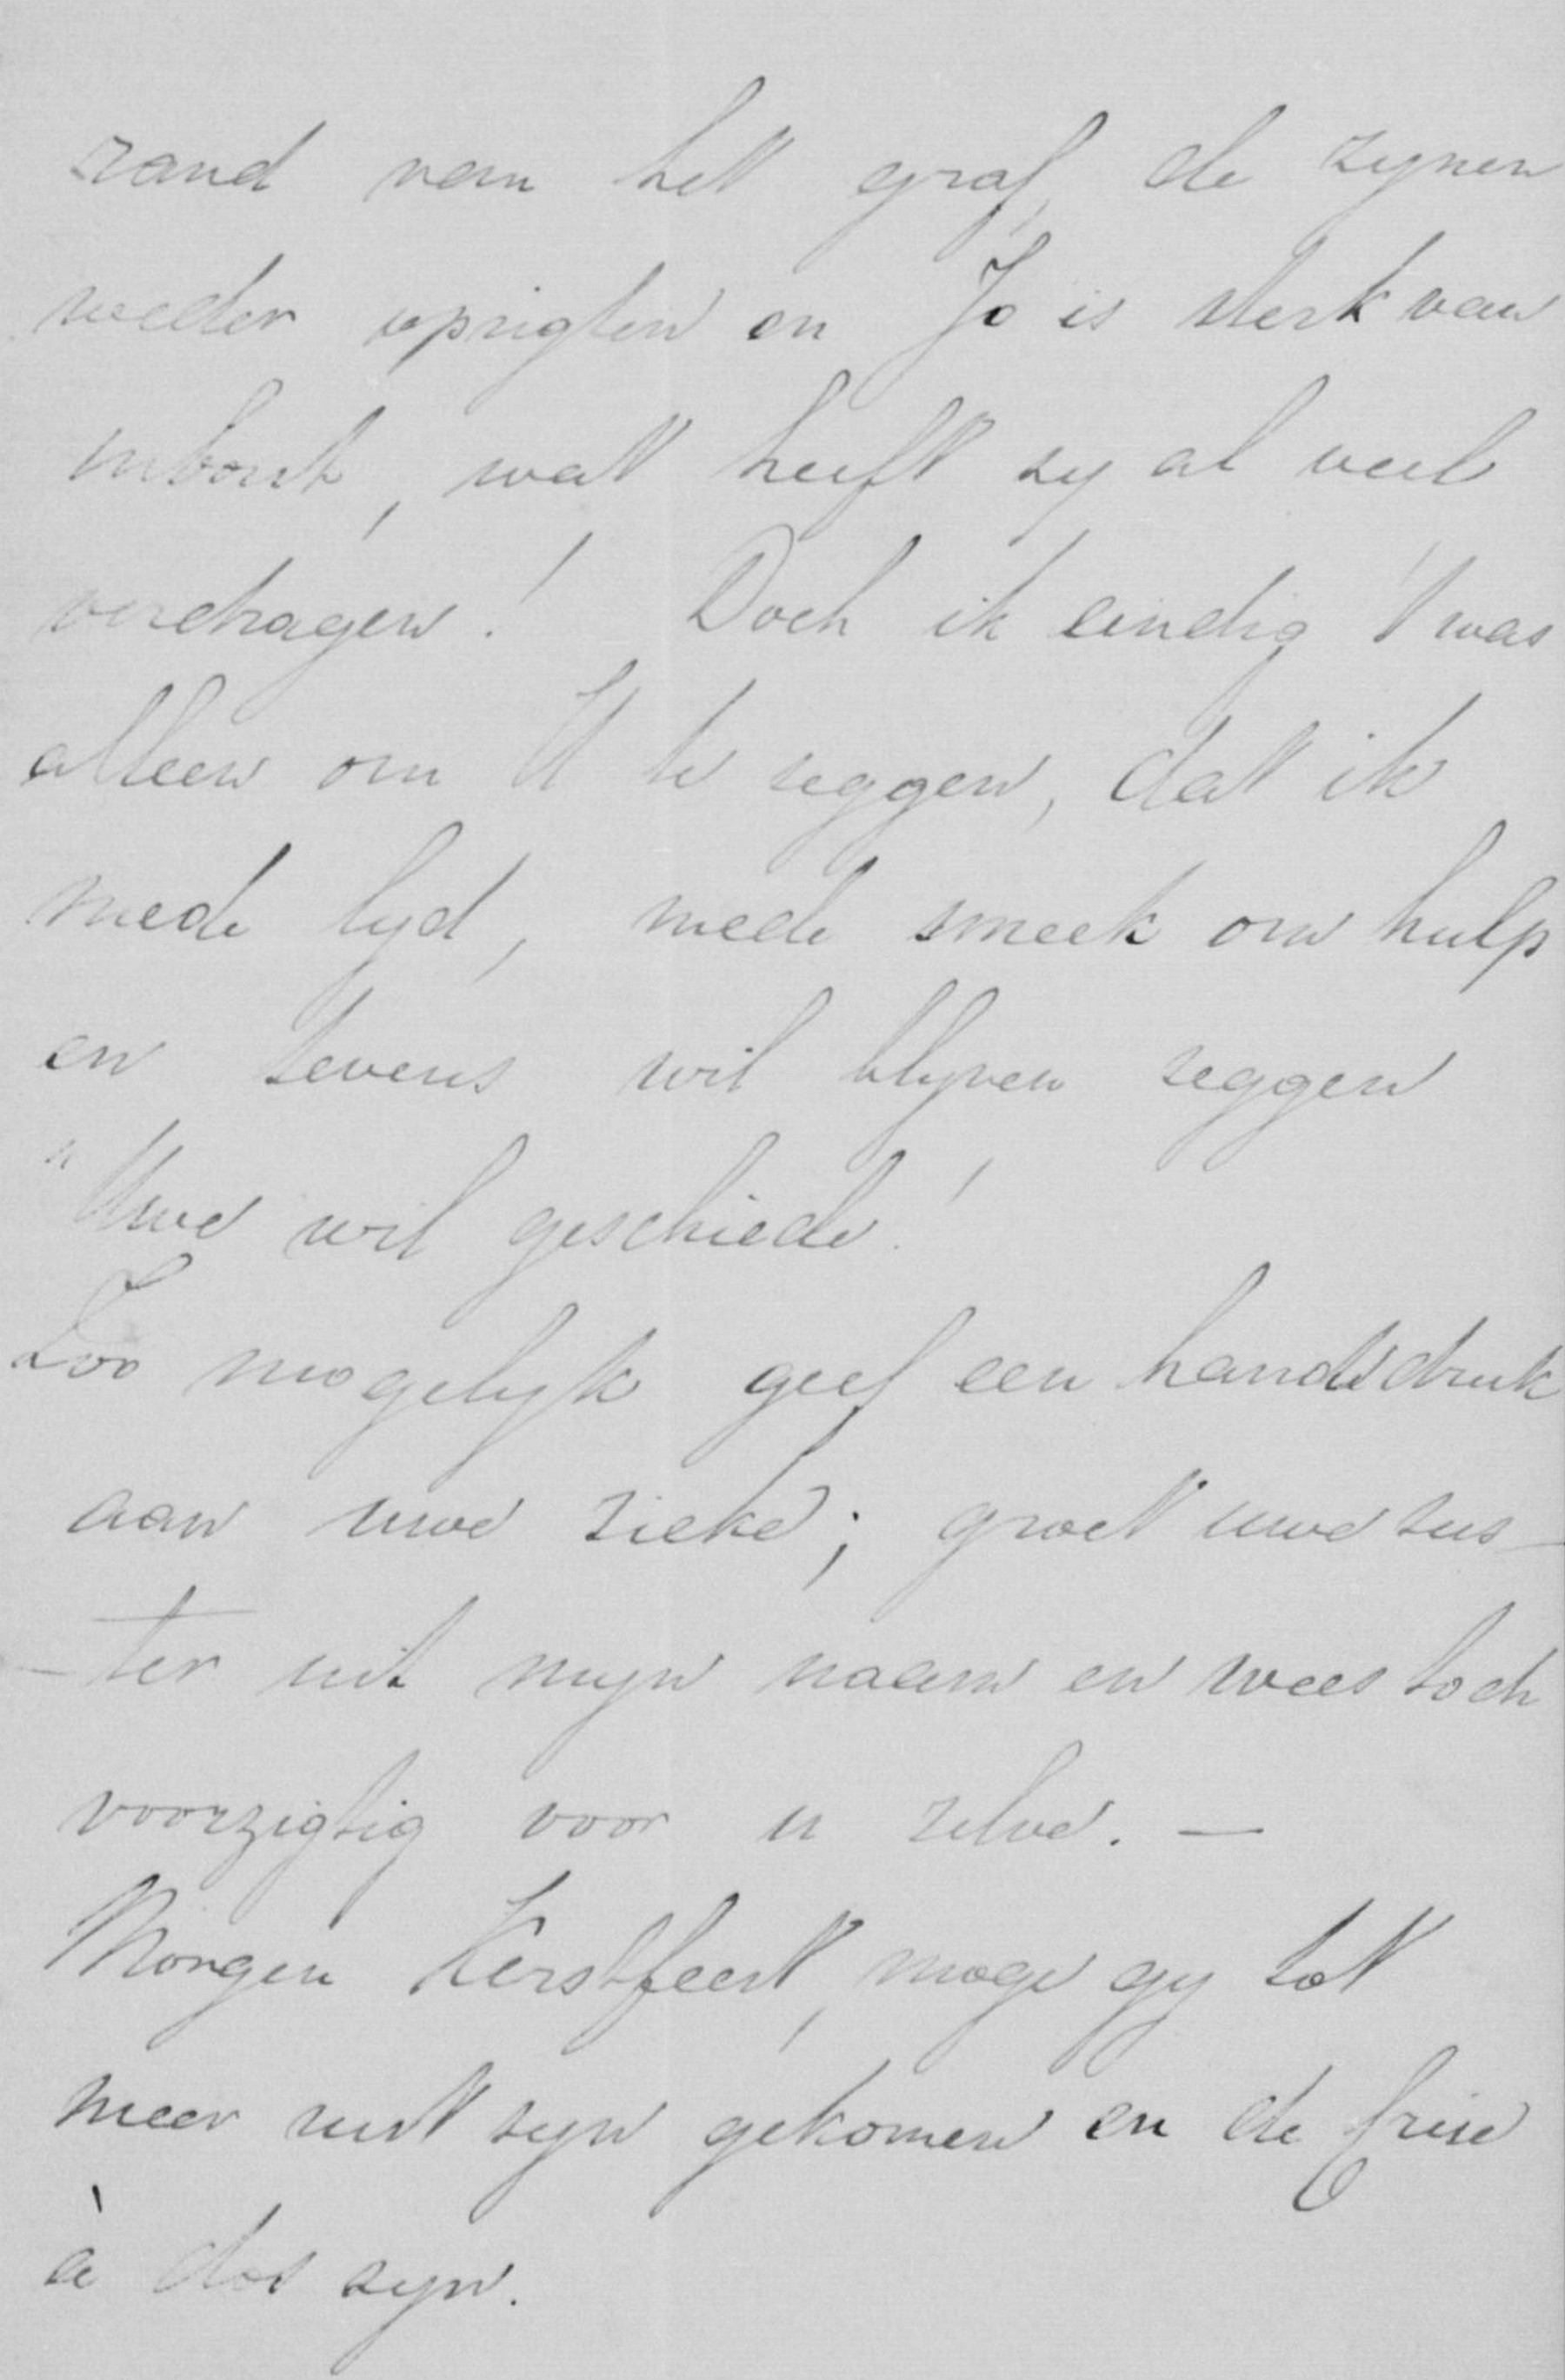 rand van het graf, de zynen
weder oprigten en Jo is sterk van
inborst, wat heeft zy al veel
verdragen! Doch ik eindig 't was
alleen om U te zeggen, dat ik
mede lyd, mede smeek om hulp
en tevens wil blyven zeggen
"Uwe wil geschiede!
Zoo mogelyk geef een handsdruk
aan uwe zieke; groet uwe zus-
-ter uit myn naam en wees toch
voorzigtig voor u zelve. —
Morgen Kerstfeest, moge gy tot
meer rust zyn gekomen en de crise
à dos zyn.